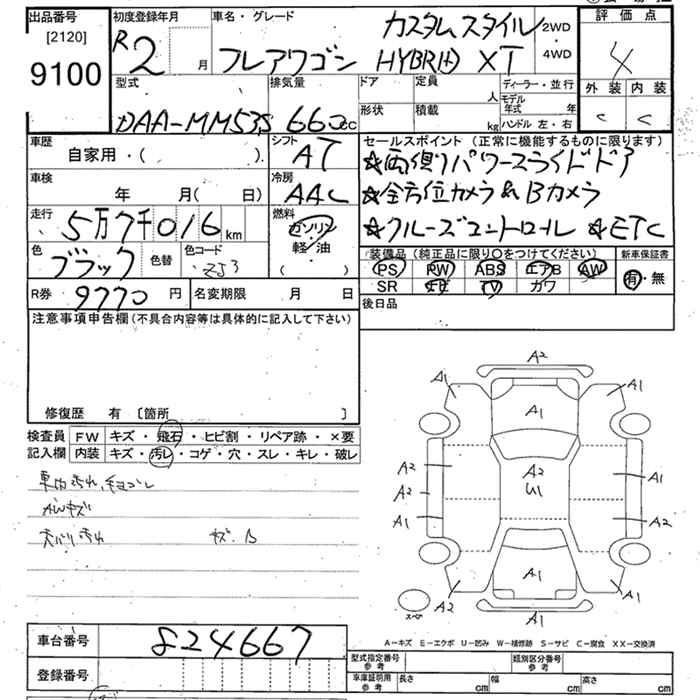 出品番号 初度登録年月 車名・グレード カスタムスタイル 2WD 評価点
[2120] R2 月 フレアワゴン HYBRID XT ・ 4WD 4
9100
型式 排気量 ドア 定員 人 ディーラー・並行 外装 内装
DAA-MM53S 660cc 形状 積載 kg モデル年式 年 C C
ハンドル 左・右
車歴 自家用・( ). シフト AT セールスポイント(正常に機能するものに限ります)
☆両側パワースライドドア
車検 年 月( 日) 冷房 AAC ☆全方位カメラ&Bカメラ
走行 5万7千016km 燃料 ガソリン ☆クルーズコントロール ☆ETC
軽・油
( )
色 ブラック 色替 色コード ZJ3 装備品(純正品に限り〇をつけてください) 新車保証書
PS PW ABS エアB AW 有・無
SR TV ガワ
R券 9770円 名変期限 月 日 後日品
注意事項申告欄(不具合内容等は具体的に記入して下さい)
修復歴 有 [箇所 ]
検査員 FW キズ・飛石・ヒビ割・リペア跡・×要
記入欄 内装 キズ・汚レ・コゲ・穴・スレ・キレ・破レ
車内汚れ
AWキズ
キズ. B
A2
A1 A1
A1
A2 A2 A1
A2 U1
A1 A2
A1
A2 A1
スペア A1
A-キズ E-エクボ U-凹み W-補修跡 S-サビ C-腐食 XX-交換済
車台番号 824667
登録番号
型式指定番号 参考 類別区分番号 参考
車庫証明用 参考 長さ cm 幅 cm 高さ cm